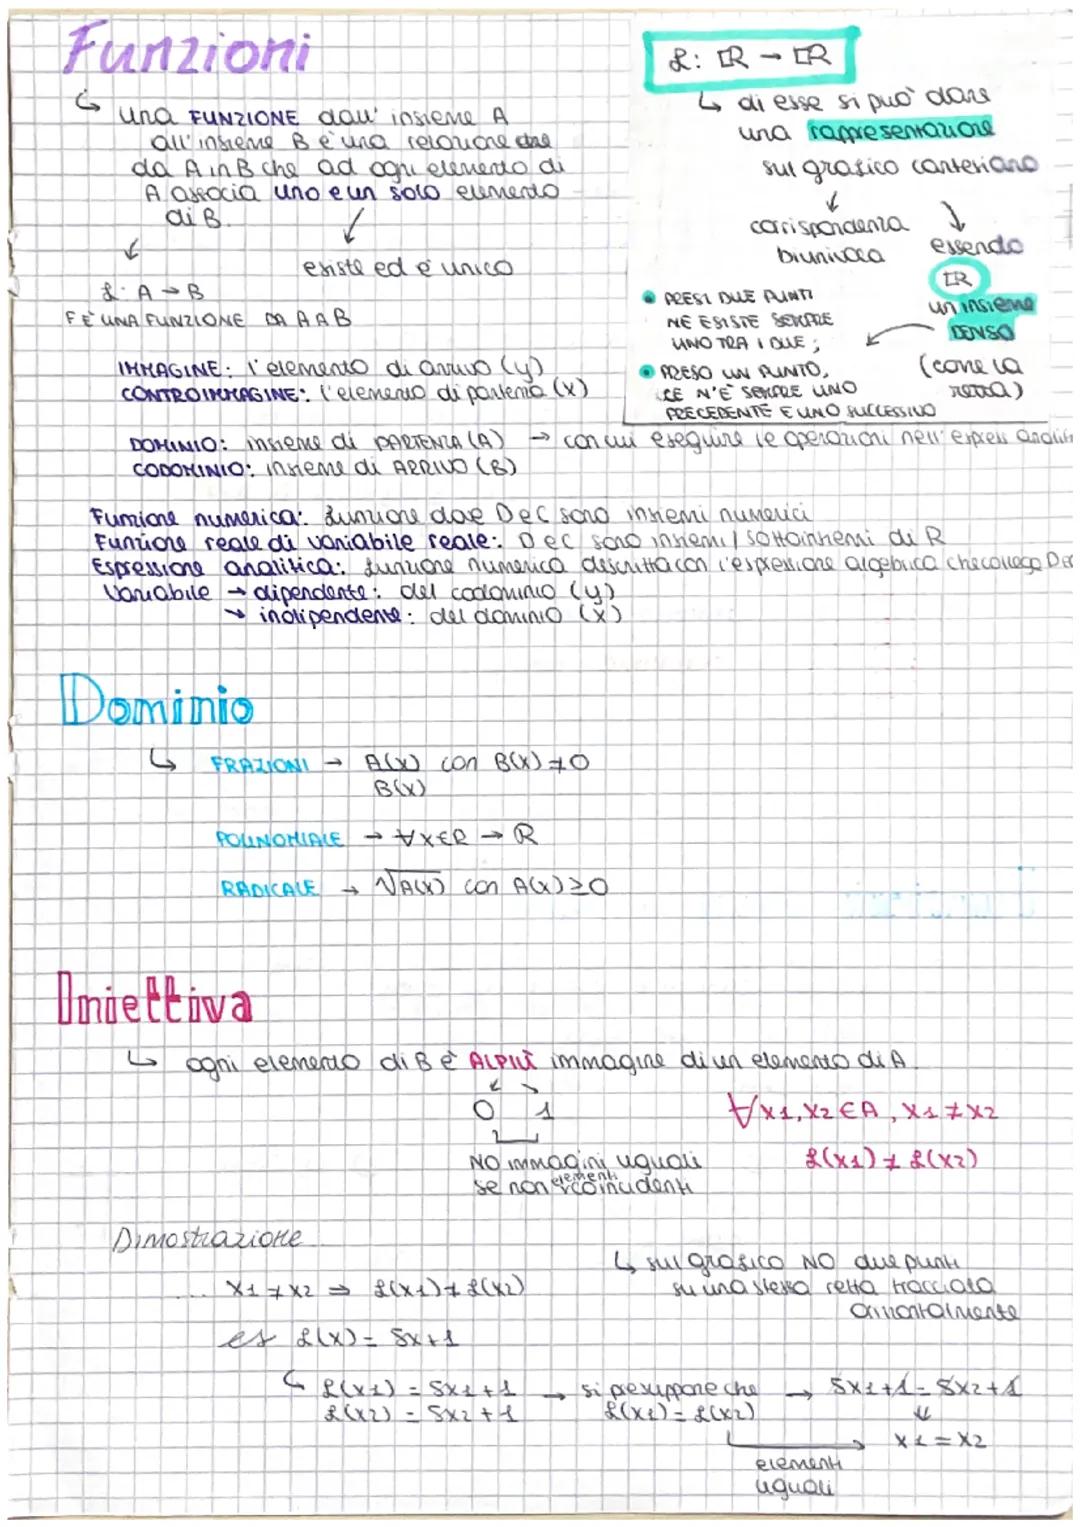 Funzioni
una FUNZIONE dall' insieme A
all'insieme B è una relazione che
da A in B che ad ogni elemento di
A associa uno e un solo elemento
di B.
esiste ed è unico
f: A → B
F È UNA FUNZIONE DA A A B
IMMAGINE: l'elemento di arrivo (y)
CONTROIMMAGINE: l'elemento di partenza (x)
f: R → R
di esse si può dare
una rappresentazione
sul grafico cartesiano
corrispondenza
biunivoca
essendo
R
un insieme
DENSO
(come la
retta)
PRESI DUE PUNTI
NE ESISTE SEMPRE
UNO TRA I DUE;
PRESO UN PUNTO,
CE N'È SEMPRE UNO
PRECEDENTE E UNO SUCCESSIVO
DOMINIO: insieme di PARTENZA (A) → con cui eseguire le operazioni nell'espress analit
CODOMINIO: insieme di ARRIVO (B)
Funzione numerica: funzione dove D e C sono insiemi numerici
Funzione reale di variabile reale: D e C sono insiemi / sottoinsiemi di R
Espressione analitica: funzione numerica descritta con l'espressione algebrica che collega D e C
Variabile → dipendente: del codominio (y)
→ indipendente: del dominio (x)
Dominio
FRAZIONI → A(x) con B(x) ≠ 0
B(x)
POLINOMIALE → ∀x∈R → R
RADICALE → √A(x) con A(x) ≥ 0
Iniettiva
ogni elemento di B è AL PIÙ immagine di un elemento di A.
0 1
NO immagini uguali
se non elementi coincidenti
∀x1, x2 ∈ A, x1 ≠ x2
f(x1) ≠ f(x2)
Dimostrazione
x1 ≠ x2 ⇒ f(x1) ≠ f(x2)
sul grafico NO due punti
su una stessa retta tracciata
orizzontalmente
es f(x) = 5x+1
f(x1) = 5x1 + 1 → si presuppone che → 5x1+1 = 5x2+1
f(x2) = 5x2 + 1 f(x1) = f(x2)
x1 = x2
elementi
uguali